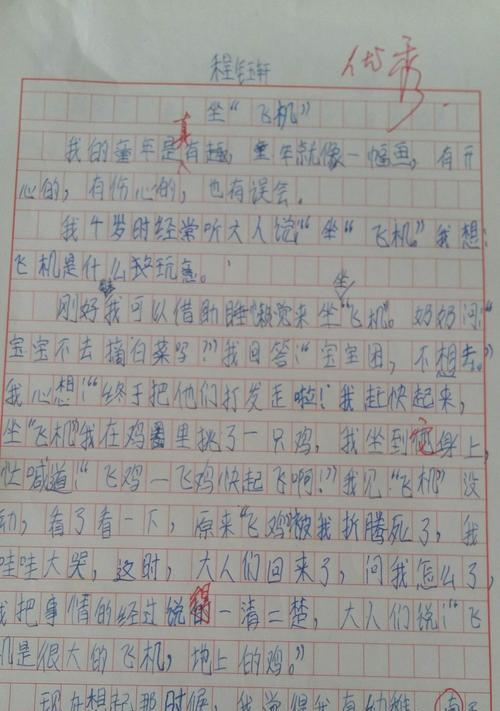 程钰轩
优秀
坐“飞机”
我的童年是真有趣,童年就像一幅画,有开
心的,有伤心的,也有误会。
我4岁时经常听大人说:“坐“飞机”。我想:
飞机是什么玩意。
刚好我可以借助睡觉来坐“飞机”。奶奶问:“
宝宝不去摘白菜吗?”我回答:“宝宝困,不想去。”
我心想:“终于把他们打发走啦!我赶快起来,
坐“飞机”我在鸡里挑了一只鸡,我坐到它身上,
忙喊道:“飞鸡一飞鸡快起飞啊!”我见“飞机”没
动,看了看一下,原来“飞鸡”被我折腾死了,我
哇哇大哭,这时,大人们回来了,问我怎么了,
我把事情的经过说得一清二楚,大人们说:“飞
机是很大的飞机,地上的鸡。”
现在想起那时候,我觉得我有幼稚